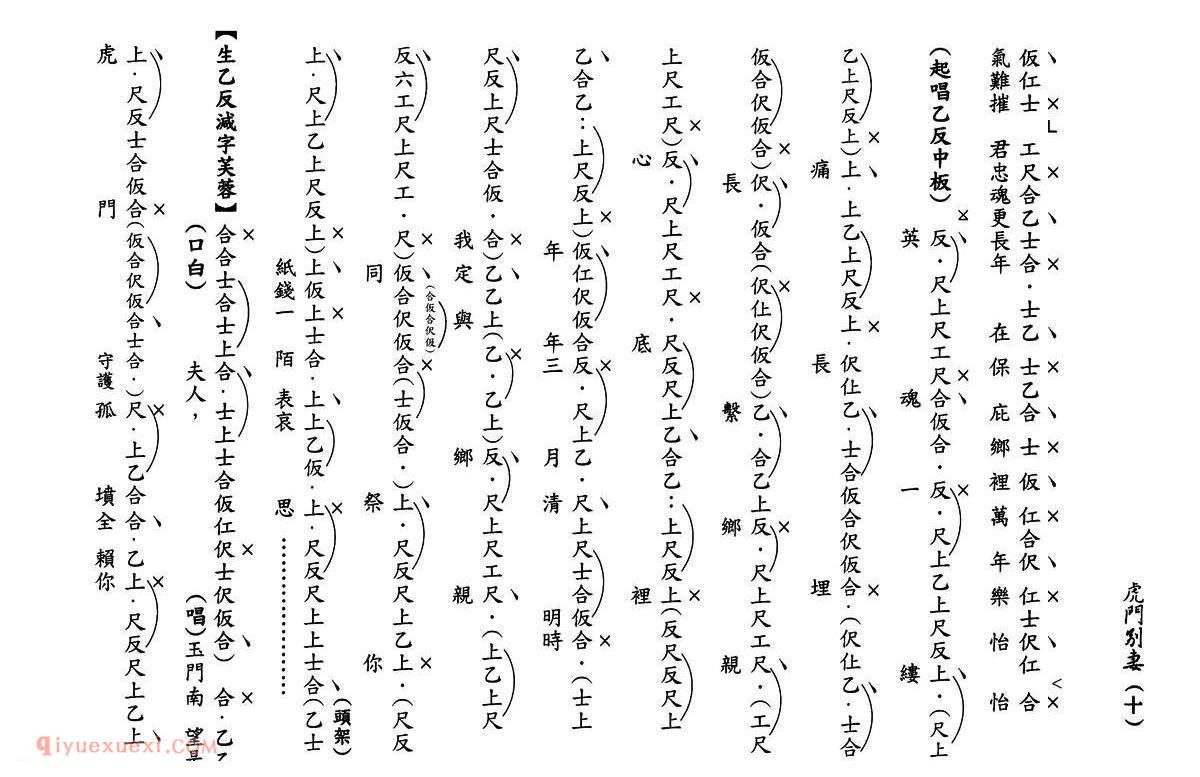 虎門別妻(十)
仮仜士 工尺合乙士合·士乙 士乙合士仮仜合伬仜士伬仜合
氣難摧 君忠魂更長年 在保庇鄉裡萬年樂怡怡
(起唱乙反中板) 反·尺上尺工尺合仮合·反·尺上乙上尺反上·(尺上
英 魂 一 縷
乙上尺反上)上·上乙上尺反上·伬仩乙·士合仮合伬仮合·(伬仩乙·士合
痛 長 埋
仮合伬仮合)伬·仮合(伬仩伬仮合)乙·合乙上反·尺上尺工尺·(工尺
長 繫 鄉 親
上尺工尺)反·尺上尺工尺·尺反尺上乙合乙:上尺反上(反尺反尺上
心 底 裡
乙合乙:上尺反上)仮仜伬仮合反·尺上乙·尺上尺士合仮合·(士上
年 年三 月 清 明時
尺反上尺士合仮·合)乙乙上(乙·乙上)反·尺上尺工尺·(上乙上尺
我定與 鄉 親
反六工尺上尺工·尺)仮合伬仮合(士仮合·)上·尺反尺上乙上·(尺反
(合仮合伬仮)
同 祭 你
上·尺上乙上尺反上)上仮上士合·上上乙仮·上·尺反尺上上士合(乙士
(頭架)
紙錢一 陌 表哀 思
【生乙反減字芙蓉】合合士合士上合·士上士合仮仜伬士伬仮合) 合·乙乙
(口白) 夫人, (唱)玉門南 望
上·尺反士合仮合(仮合伬仮合士合·)尺·上乙合合·乙上·尺反尺上乙上
虎 門 守護孤 墳全賴你
qiyuexuexi.COM